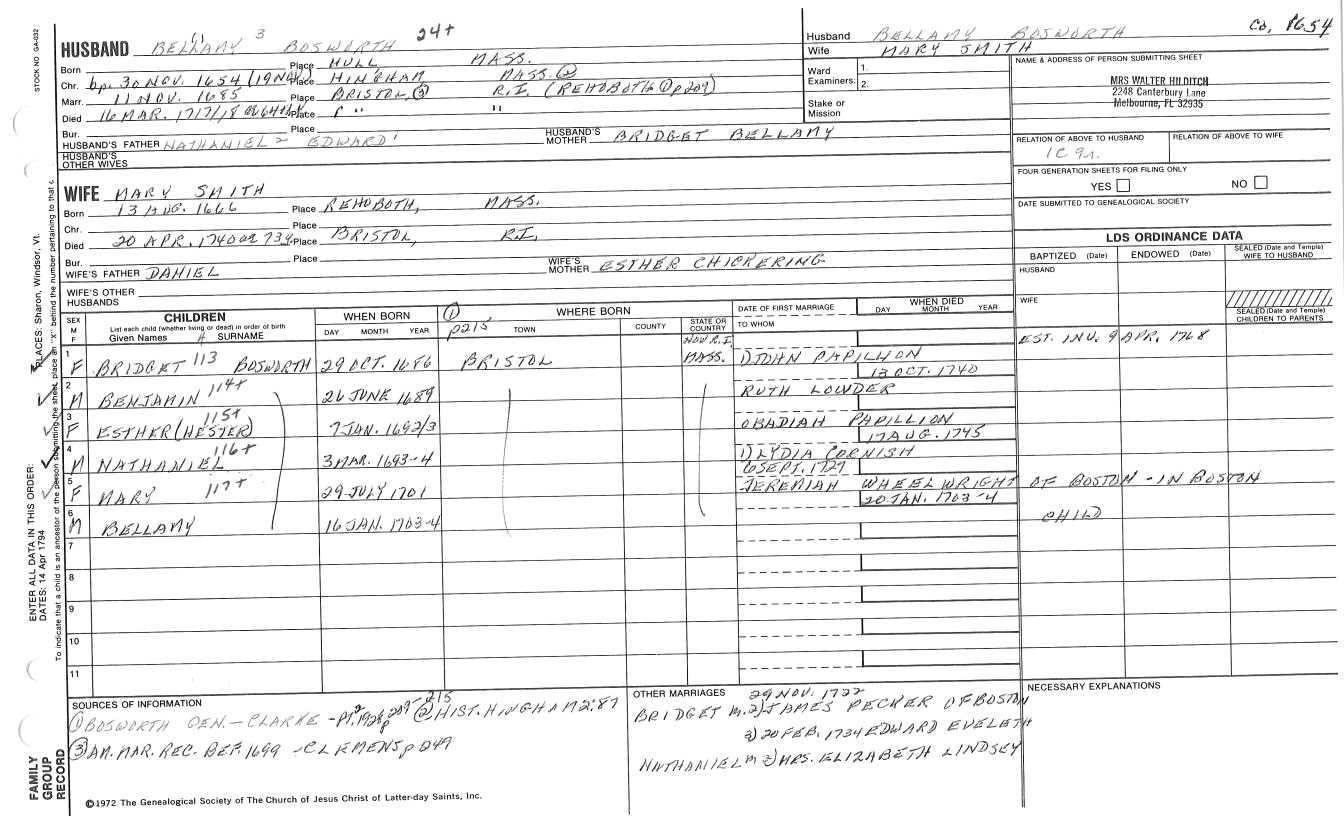 STOCK NO GA-032
HUSBAND BELLAMY (1) 3 BOSWORTH 24+
Born Place HULL MASS.
Chr. bp. 30 NOV. 1654 (19 NOV.) Place HINGHAM MASS. ②
Marr. 11 NOV. 1685 Place BRISTOL, ③ R.I. (REHOBOTH ① p 209)
Died 16 MAR. 1717/18 Place " "
Bur. Place
HUSBAND'S FATHER NATHANIEL 2 EDWARD 1 HUSBAND'S MOTHER BRIDGET BELLAMY
HUSBAND'S OTHER WIVES
Husband BELLAMY BOSWORTH Ca, 1654
Wife MARY SMITH
Ward Examiners: 1. 2.
Stake or Mission
NAME & ADDRESS OF PERSON SUBMITTING SHEET
MRS WALTER HILDITCH
2248 Canterbury Lane
Melbourne, FL 32935
RELATION OF ABOVE TO HUSBAND RELATION OF ABOVE TO WIFE
1C 9r.
FOUR GENERATION SHEETS FOR FILING ONLY
YES NO
DATE SUBMITTED TO GENEALOGICAL SOCIETY
WIFE MARY SMITH
Born 13 AUG. 1666 Place REHOBOTH, MASS.
Chr. Place
Died 20 APR. 1740 or 1734 Place BRISTOL, R.I.
Bur. Place
WIFE'S FATHER DANIEL WIFE'S MOTHER ESTHER CHICKERING
WIFE'S OTHER HUSBANDS
LDS ORDINANCE DATA
BAPTIZED (Date) ENDOWED (Date) SEALED (Date and Temple) WIFE TO HUSBAND
HUSBAND
WIFE
SEALED (Date and Temple) CHILDREN TO PARENTS
SEX M F CHILDREN List each child (whether living or dead) in order of birth Given Names SURNAME
WHEN BORN DAY MONTH YEAR
① p215 WHERE BORN TOWN COUNTY STATE OR COUNTRY
DATE OF FIRST MARRIAGE TO WHOM
WHEN DIED DAY MONTH YEAR
NOW R.I.
1 F BRIDGET 113 BOSWORTH 29 OCT. 1686 BRISTOL MASS. 1) JOHN PAPILLION EST. INV. 9 APR. 1768
13 OCT. 1740
2 M BENJAMIN 114+ 26 JUNE 1689 RUTH LOWDER
3 F ESTHER (HESTER) 115+ 7 JAN. 1692/3 OBADIAH PAPILLION
17 AUG. 1745
4 M NATHANIEL 116+ 3 MAR. 1693-4 1) LYDIA CORNISH
6 SEPT. 1727
5 F MARY 117+ 29 JULY 1701 JEREMIAH WHEELWRIGHT OF BOSTON - IN BOSTON
20 JAN. 1703-4
6 M BELLAMY 16 JAN. 1703-4 CHILD
7
8
9
10
11
SOURCES OF INFORMATION
① BOSWORTH GEN. - CLARKE - PT. 2 1926 p 209 215 ② HIST. HINGHAM 2:87
③ AM. MAR. REC. BEF. 1699 - CLEMENS p 249
OTHER MARRIAGES 29 NOV. 1722
BRIDGET m. 2) JAMES PECKER OF BOSTON
3) 20 FEB. 1734 EDWARD EVELETH
NATHANIEL m 2) MRS. ELIZABETH LINDSEY
NECESSARY EXPLANATIONS
©1972 The Genealogical Society of The Church of Jesus Christ of Latter-day Saints, Inc.
FAMILY GROUP RECORD
ENTER ALL DATA IN THIS ORDER:
DATES: 14 Apr 1794 PLACES: Sharon, Windsor, Vt.
To indicate that a child is an ancestor of the person submitting the sheet, place an "X" behind the number pertaining to that c.